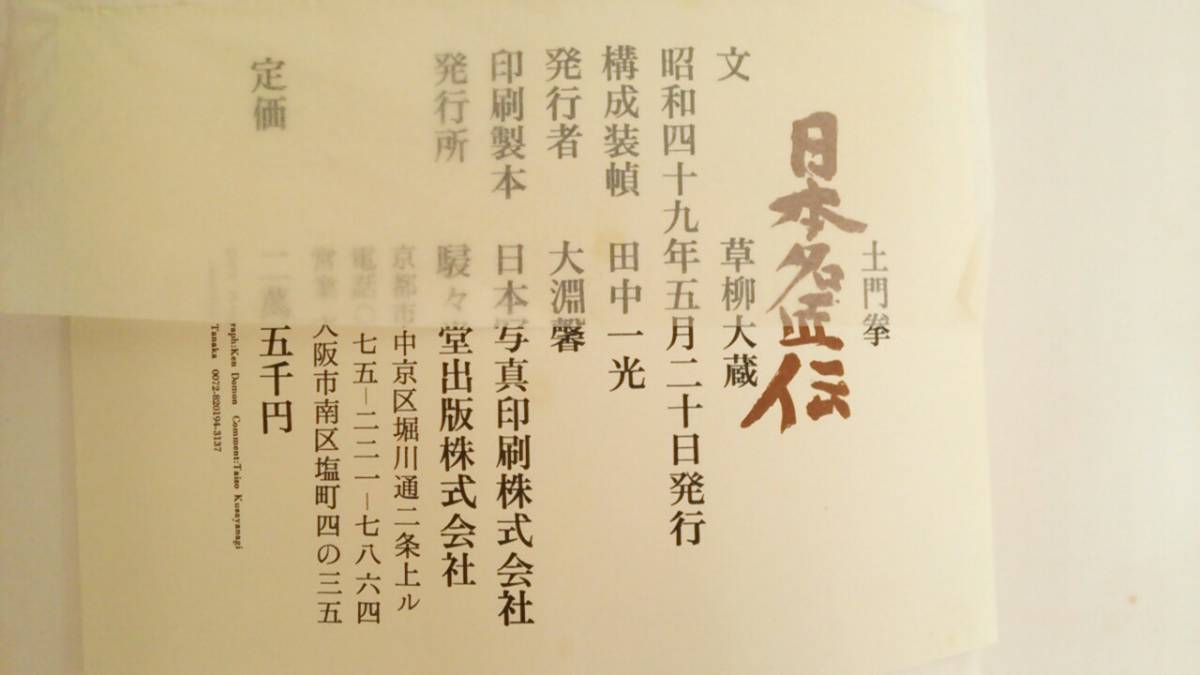 土門拳
日本名匠伝
文 草柳大蔵
昭和四十九年五月二十日発行
構成装幀 田中一光
発行者 大淵馨
印刷製本 日本写真印刷株式会社
発行所 駸々堂出版株式会社
京都市中京区堀川通二条上ル
電話〇七五―二二一―七八六四
営業 大阪市南区塩町四の三五
定価 二萬五千円
raph:Ken Domon Comment:Taiso Kusayanagi
Tanaka 0072-820194-3137